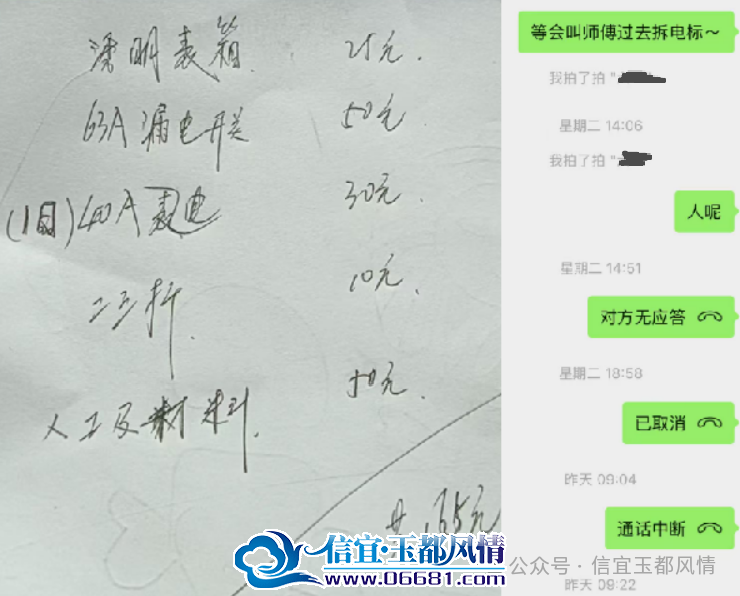 透明表箱 25元.
63A漏电开关 50元
(旧)40A 30元.
二三折. 10元.
人工及材料. 50元.
共.165元
信宜·玉都风情
www.06681.com
等会叫师傅过去拆电标～
我拍了拍 "
星期二 14:06
我拍了拍 "
人呢
星期二 14:51
对方无应答
星期二 18:58
已取消
昨天 09:04
通话中断
公众号 · 信宜玉都风情
昨天 09:22